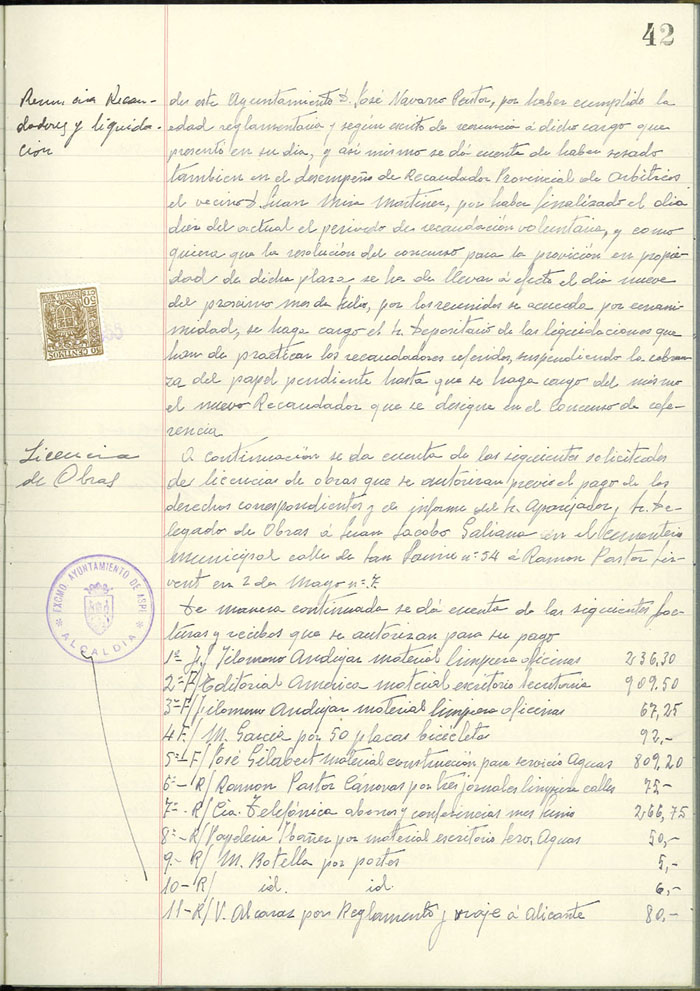 42
Renuncia Recau-
dadores y liquida-
cion
de este Ayuntamiento D. José Navarro Pastor, por haber cumplido la
edad reglamentaria y según escrito de renuncia á dicho cargo que
presentó en su dia, y asi mismo se dá cuenta de haber cesado
tambien en el desempeño de Recaudador Provincial de Arbitrios
el vecino D. Juan Mira Martinez, por haber finalizado el dia
diez del actual el periodo de recaudación voluntaria, y como
quiera que la resolución del concurso para la provición en propie-
dad de dicha plaza se ha de llevar á efecto el dia nueve
del proximo mes de Julio, por los reunidos se acuerda por unani-
midad, se haga cargo el Sr. Depositario de las liquidaciones que
han de practicar los recaudadores referidos, suspendiendo la cobran-
za del papel pendiente hasta que se haga cargo del mismo
el nuevo Recaudador que se designe en el Concurso de refe-
rencia
50 CENTIMOS
Licencia
de Obras
A continuación se da cuenta de las siguientes solicitudes
de licencias de obras que se autorizan previo el pago de los
derechos correspondientes y de informe del Sr. Aparejador, Sr. De-
legado de Obras á Juan Jacobo Galiana en el Cementerio
Municipal calle de San Jaime nº 54 á Ramon Pastor
en 2 de Mayo nº 7
EXCMO. AYUNTAMIENTO DE ASPE
ALCALDIA
De manera continuada se dá cuenta de las siguientes fac-
turas y recibos que se autorizan para su pago
1ª F/ Filomeno Andujar material limpieza oficinas 236,30
2ª F/ Editorial America material escritorio secretaria 909.50
3ª F/ Filomeno Andujar material limpieza oficinas 67,25
4 F. / M. Garcia por 50 placas bicicletas 92,-
5ª - F/ José Gilabert material construcción para servicio Aguas 809,20
6ª - R/ Ramon Pastor Cánovas por tres jornales limpieza calles 75-
7ª - R/ Cia. Telefónica abonos y conferencias mes Junio 266,75
8ª - R/ Ibañez por material escritorio Aguas 50,-
9 - R/ M. Botella por portes 5,-
10 - R/ id. id. 6,-
11 - R/ V. Alcaraz por Reglamento y viaje á Alicante 80,-